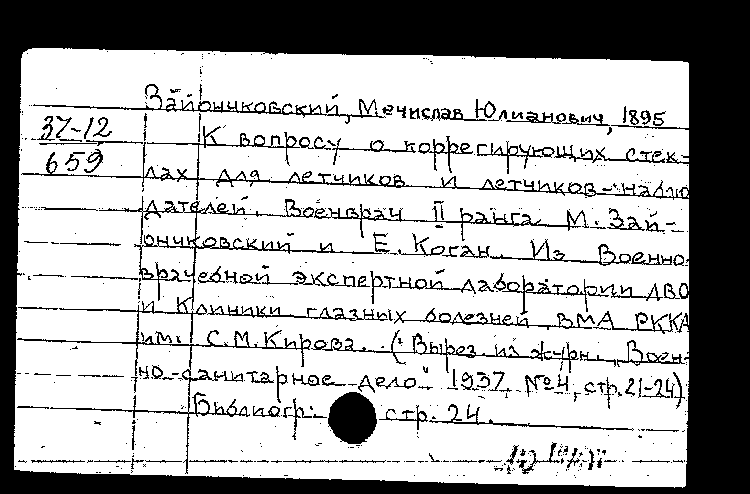 Зайончковский, Мечислав Юлианович, 1895
37-12
659
К вопросу о коррегирующих стек-
лах для летчиков и летчиков-наблю
дателей. Военврач II ранга М. Зай-
ончковский и Е. Коган. Из Военно-
врачебной экспертной лаборатории ДВО
и Клиники глазных болезней ВМА РККА
им. С.М. Кирова. (Вырез. из журн. „Воен-
но-санитарное дело" 1937, № 4, стр. 21-24)
Библиогр: стр. 24.